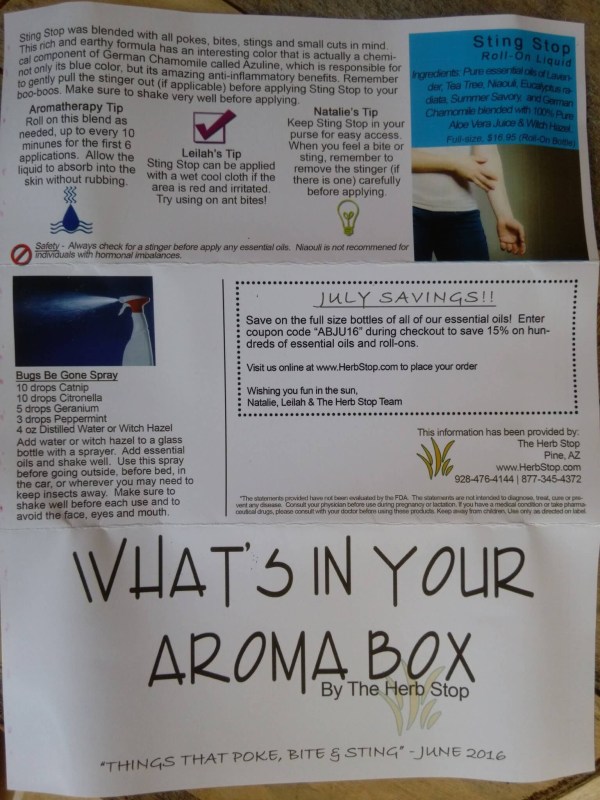 Sting Stop was blended with all pokes, bites, stings and small cuts in mind.
This rich and earthy formula has an interesting color that is actually a chemi-
cal component of German Chamomile called Azuline, which is responsible for
not only its blue color, but its amazing anti-inflammatory benefits. Remember
to gently pull the stinger out (if applicable) before applying Sting Stop to your
boo-boos. Make sure to shake very well before applying.
Sting Stop
Roll-On Liquid
Ingredients: Pure essential oils of Laven-
der, Tea Tree, Niaouli, Eucalyptus ra-
diata, Summer Savory, and German
Chamomile blended with 100% Pure
Aloe Vera Juice & Witch Hazel.
Full-size, $16.95 (Roll-On Bottle)
Aromatherapy Tip
Roll on this blend as
needed, up to every 10
minunes for the first 6
applications. Allow the
liquid to absorb into the
skin without rubbing.
Leilah's Tip
Sting Stop can be applied
with a wet cool cloth if the
area is red and irritated.
Try using on ant bites!
Natalie's Tip
Keep Sting Stop in your
purse for easy access.
When you feel a bite or
sting, remember to
remove the stinger (if
there is one) carefully
before applying.
Safety - Always check for a stinger before apply any essential oils. Niaouli is not recommened for
individuals with hormonal imbalances.
Bugs Be Gone Spray
10 drops Catnip
10 drops Citronella
5 drops Geranium
3 drops Peppermint
4 oz Distilled Water or Witch Hazel
Add water or witch hazel to a glass
bottle with a sprayer. Add essential
oils and shake well. Use this spray
before going outside, before bed, in
the car, or wherever you may need to
keep insects away. Make sure to
shake well before each use and to
avoid the face, eyes and mouth.
JULY SAVINGS!!
Save on the full size bottles of all of our essential oils! Enter
coupon code "ABJU16" during checkout to save 15% on hun-
dreds of essential oils and roll-ons.
Visit us online at www.HerbStop.com to place your order
Wishing you fun in the sun,
Natalie, Leilah & The Herb Stop Team
This information has been provided by:
The Herb Stop
Pine, AZ
www.HerbStop.com
928-476-4144 | 877-345-4372
*The statements provided have not been evaluated by the FDA. The statements are not intended to diagnose, treat, cure or pre-
vent any disease. Consult your physician before use during pregnancy or lactation. If you have a medical condition or take pharma-
ceutical drugs, please consult with your doctor before using these products. Keep away from children. Use only as directed on label.
WHAT'S IN YOUR
AROMA BOX
By The Herb Stop
"THINGS THAT POKE, BITE & STING" - JUNE 2016